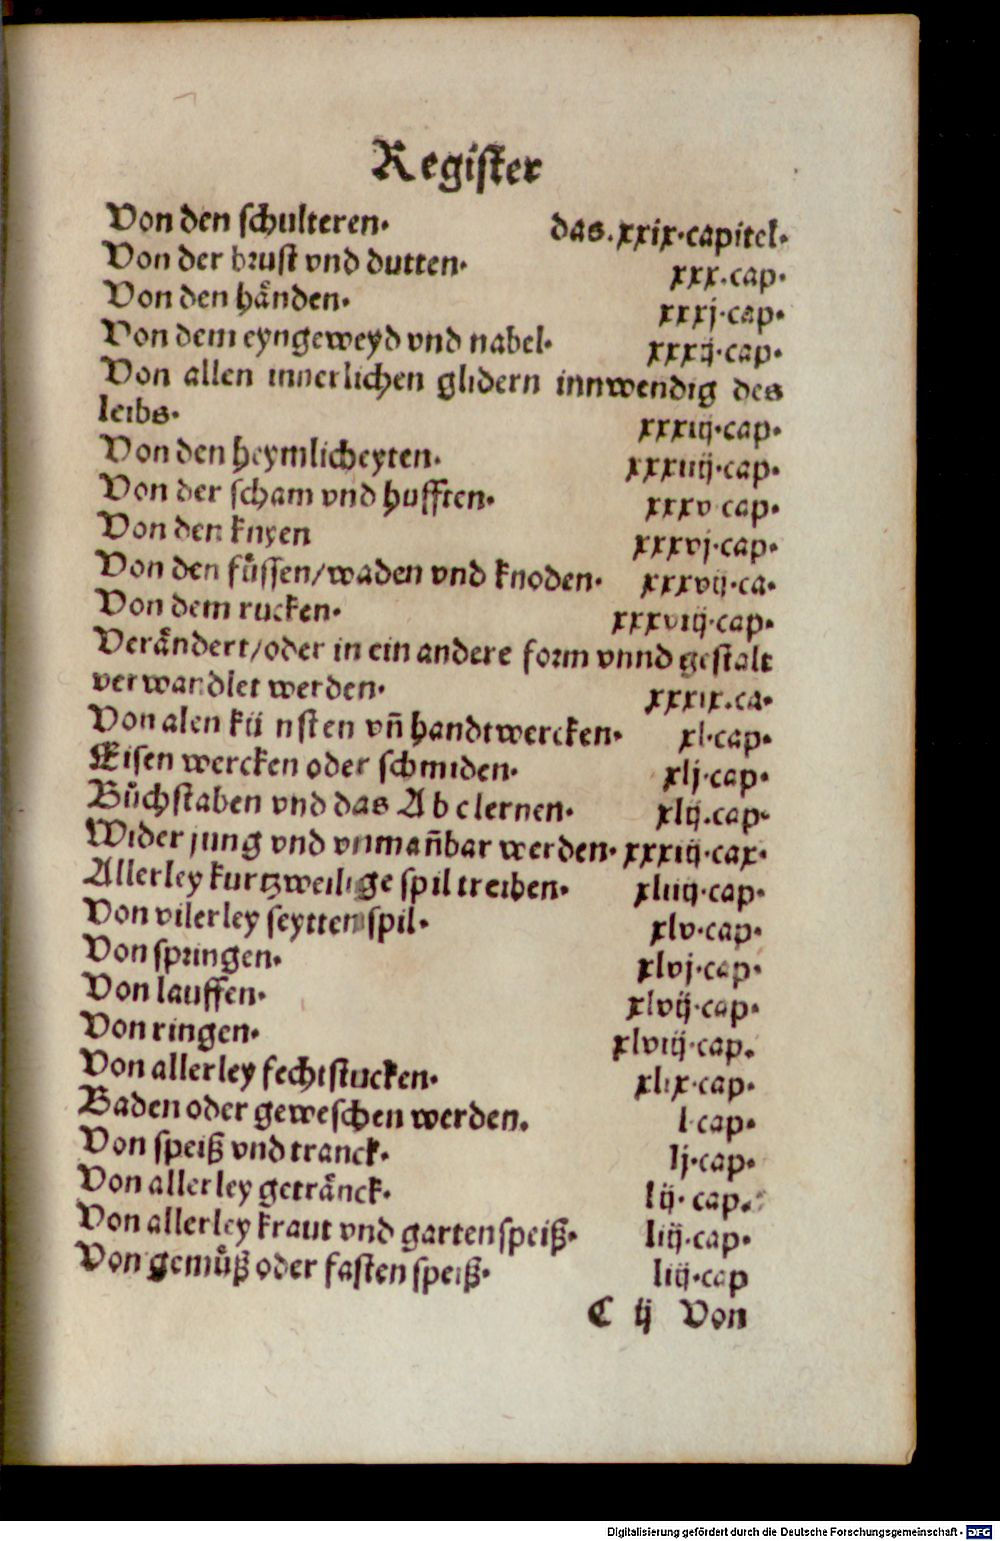 Register
Von den schulteren. das.xxix.capitel.
Von der brust vnd dutten. xxx.cap.
Von den hånden. xxxj.cap.
Von dem eyngeweyd vnd nabel. xxxij.cap.
Von allen innerlichen glidern innwendig des
leibs. xxxiij.cap.
Von den heymlicheyten. xxxiiij.cap.
Von der scham vnd hufften. xxxv cap.
Von den knyen xxxvj.cap.
Von den fůssen/waden vnd knoden. xxxvij.ca.
Von dem rucken. xxxviij.cap.
Veråndert/oder in ein andere form vnnd gestalt
verwandlet werden. xxxix.ca.
Von alen kü nsten vñ handtwercken. xl.cap.
Eisen wercken oder schmiden. xlj.cap.
Bůchstaben vnd das A b c lernen. xlij.cap.
Wider jung vnd vnmañbar werden. xxxiij.cax.
Allerley kurtzweilige spil treiben. xliiij.cap.
Von vilerley seytten spil. xlv.cap.
Von springen. xlvj.cap.
Von lauffen. xlvij.cap.
Von ringen. xlviij.cap.
Von allerley fechtstucken. xlix.cap.
Baden oder geweschen werden. l cap.
Von speiß vnd tranck. lj.cap.
Von allerley getränck. lij. cap.
Von allerley kraut vnd gartenspeiß. liij.cap.
Von gemůß oder fasten speiß. liij.cap
C ij Von
Digitalisierung gefördert durch die Deutsche Forschungsgemeinschaft - DFG